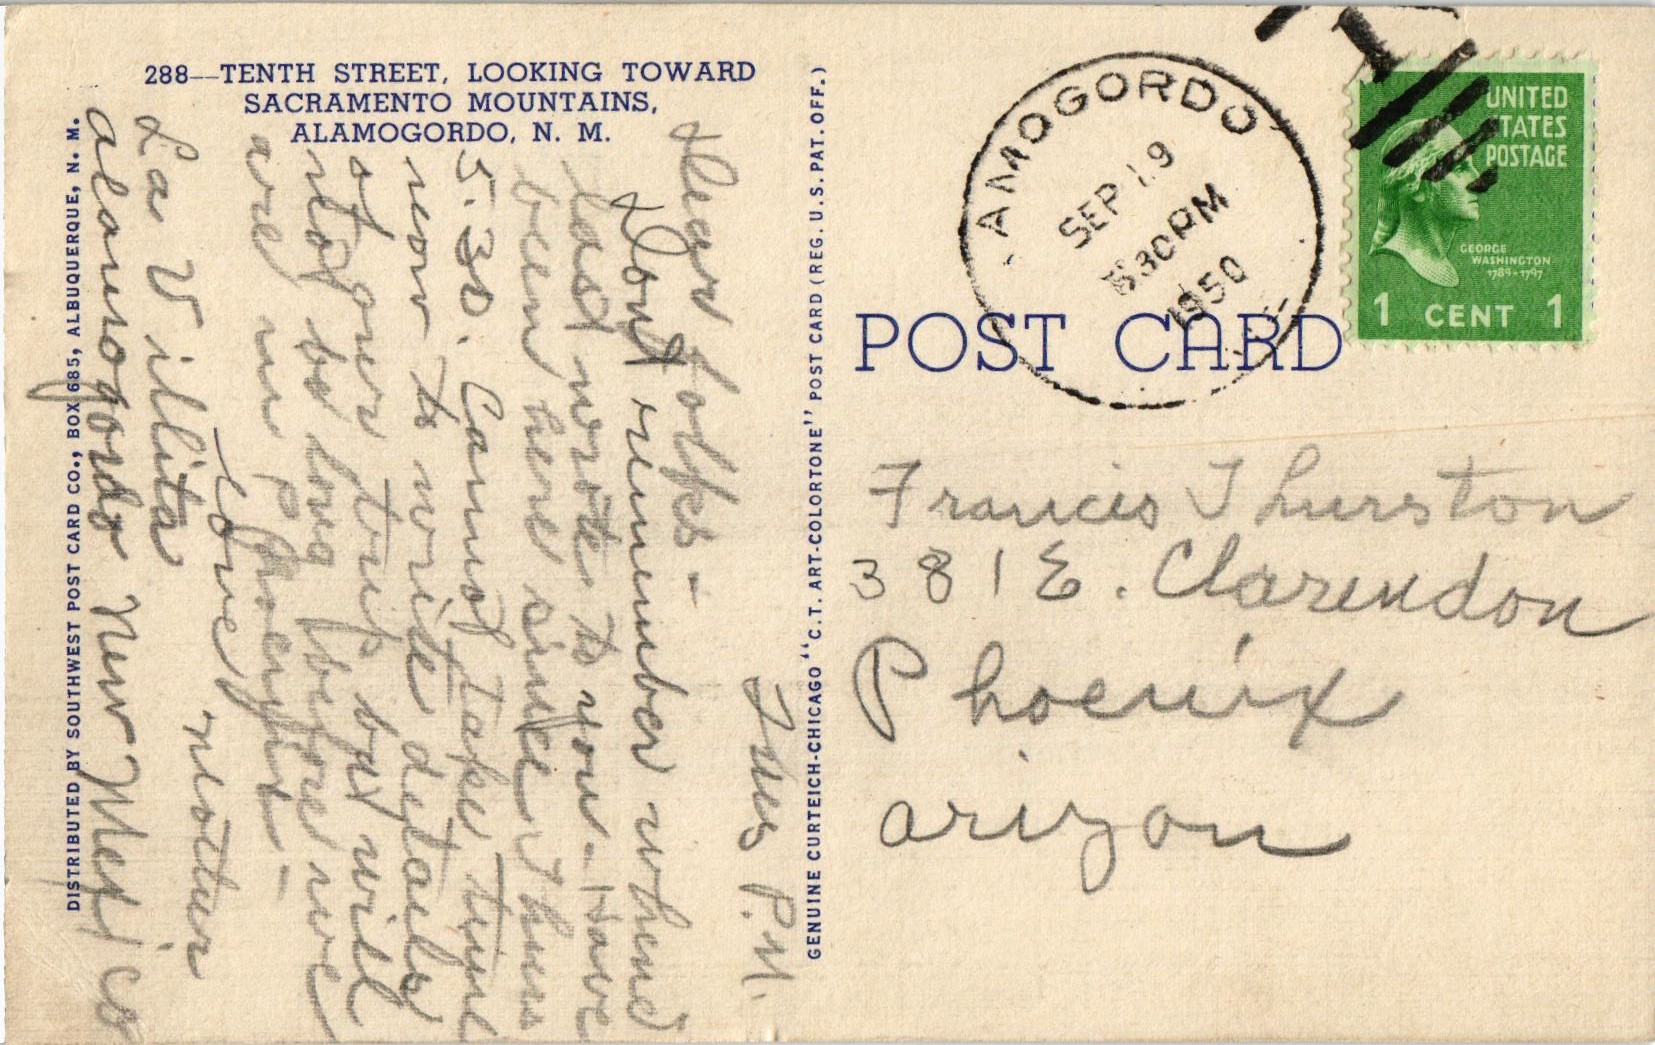 288—TENTH STREET, LOOKING TOWARD
SACRAMENTO MOUNTAINS,
ALAMOGORDO, N. M.
Tues P.M.
Dear Folks -
Dont remember when
last wrote to you - Have
been here since Thurs
5:30. Cannot take time
now to write details
of our trip but will
not be long before we
are in Phoenix -
Love
Mother
La Villita
Alamogordo New Mexico
DISTRIBUTED BY SOUTHWEST POST CARD CO., BOX 685, ALBUQUERQUE, N. M.
GENUINE CURTEICH-CHICAGO "C.T. ART-COLORTONE" POST CARD (REG. U.S. PAT. OFF.)
POST CARD
ALAMOGORDO
SEP 19
830PM
1950
UNITED
STATES
POSTAGE
GEORGE
WASHINGTON
1789-1797
1 CENT 1
Francis Thurston
381 E. Clarendon
Phoenix
Arizon